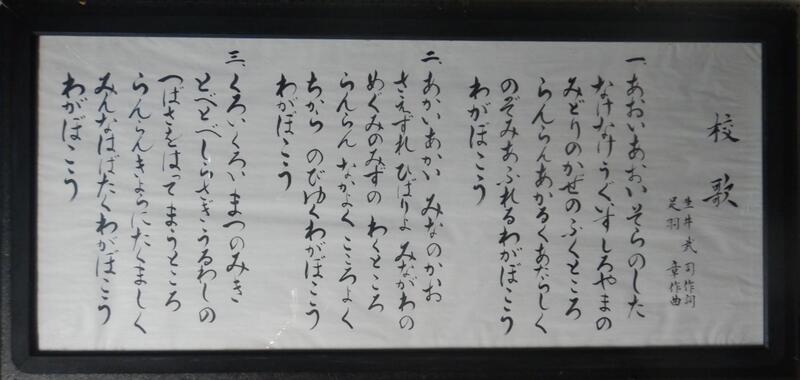 校歌
生井武司作詞
足羽章作曲
一、あおいあおいそらのした
なけなけうぐいすしろやまの
みどりのかぜのふくところ
らんらんあかるくあたらしく
のぞみあふれるわがぼこう
わがぼこう
二、あかいあかい みなのかお
さえずれ ひばりよ みながわの
めぐみのみずの わくところ
らんらん なかよく こころよく
ちから のびゆくわがぼこう
わがぼこう
三、くろいくろいまつのみき
とべとべしらさぎうるわしの
つばさをはってまうところ
らんらんきよらにたくましく
みんなはばたくわがぼこう
わがぼこう